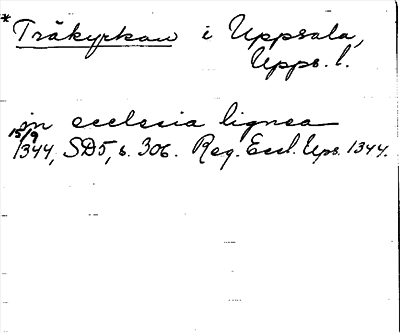 * Träkyrkan i Uppsala,
Upps. l.
in ecclesia lignea
15/9
1344, SD5, s. 306. Reg. Eccl. Ups. 1344.